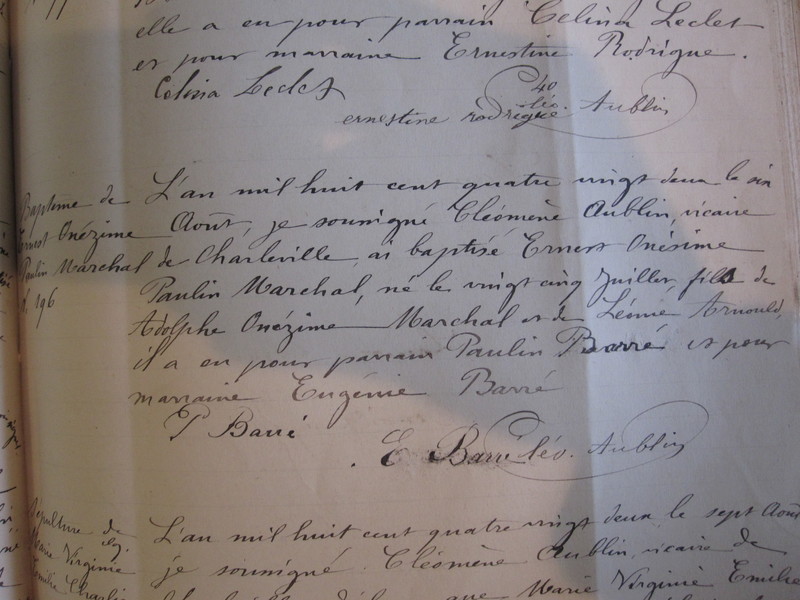 elle a eu pour parrain Celina Leclet
et pour marraine Ernestine Rodrigue.
Celina Leclet
40
ernestine rodrigue Cléo. Aublin
Baptême de
Ernest Onézime
Paulin Marchal
N. 196
L'an mil huit cent quatre vingt deux le six
Août, je soussigné Cléomène Aublin, vicaire
de Charleville, ai baptisé Ernest Onésime
Paulin Marchal, né le vingt cinq Juillet, fils de
Adolphe Onézime Marchal et de Léonie Arnould,
il a eu pour parrain Paulin Barré et pour
marraine Eugénie Barré
P Barré
E Barré Cléo. Aublin
Sépulture de
Marie Virginie
Emilie Charlin
L'an mil huit cent quatre vingt deux le sept Août
je soussigné Cléomène Aublin, vicaire de
que Marie Virginie Emilie